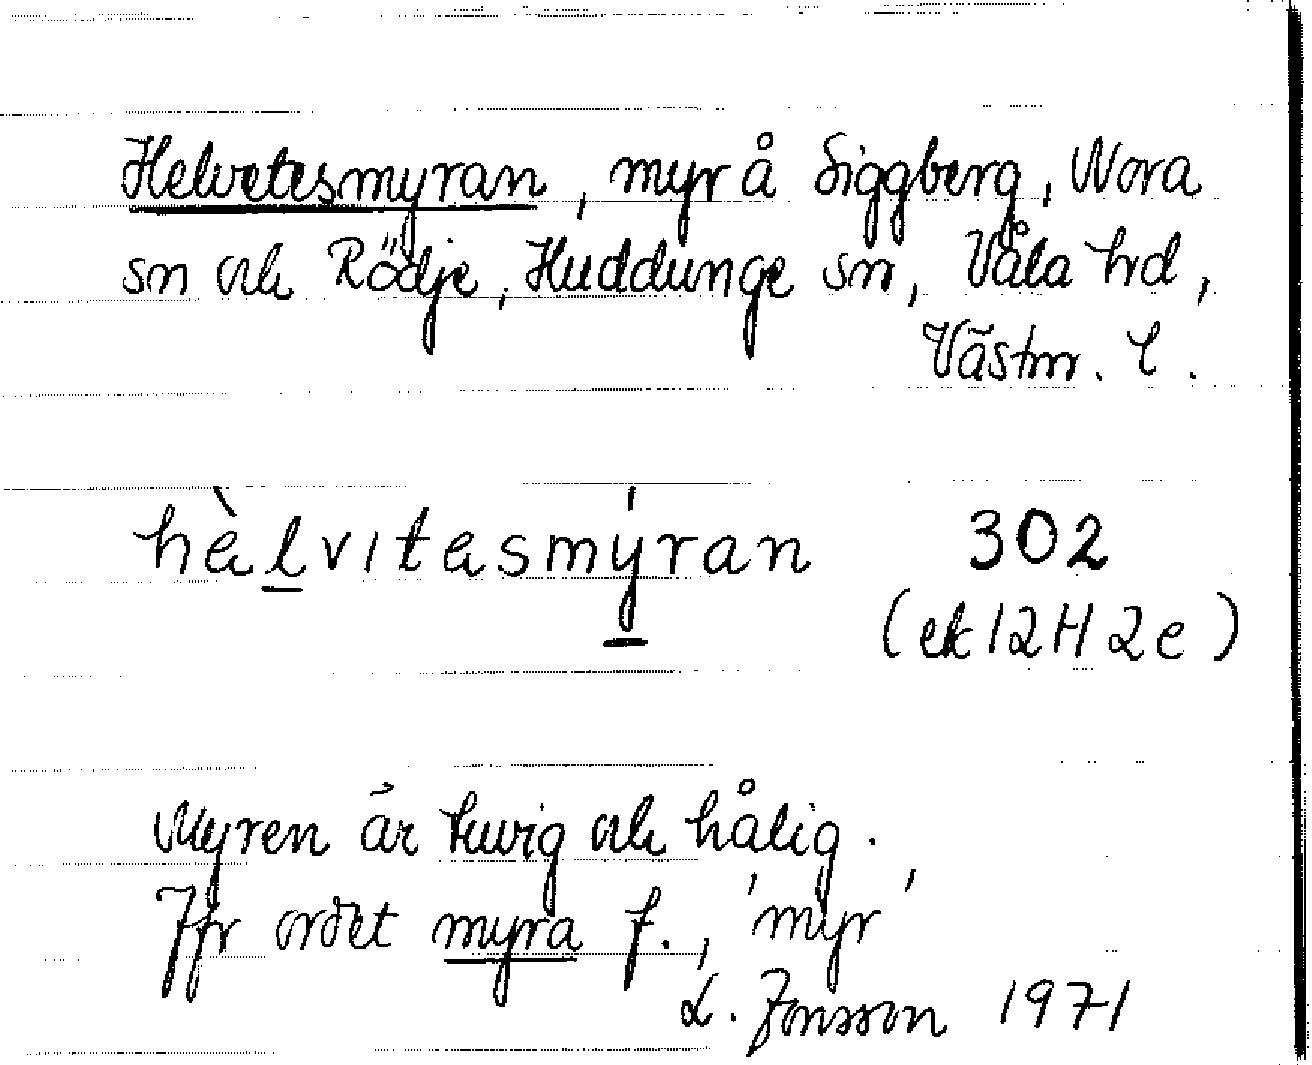 Helvetesmyran, myr å Siggberg, Nora
sn och Rödje, Huddunge sn, Våla hd,
Västm. l.
hèlvıtasmýran 302
(ek 12H 2e)
Myren är tuvig och hålig.
Jfr ordet myra f., 'myr'
L. Jonsson 1971